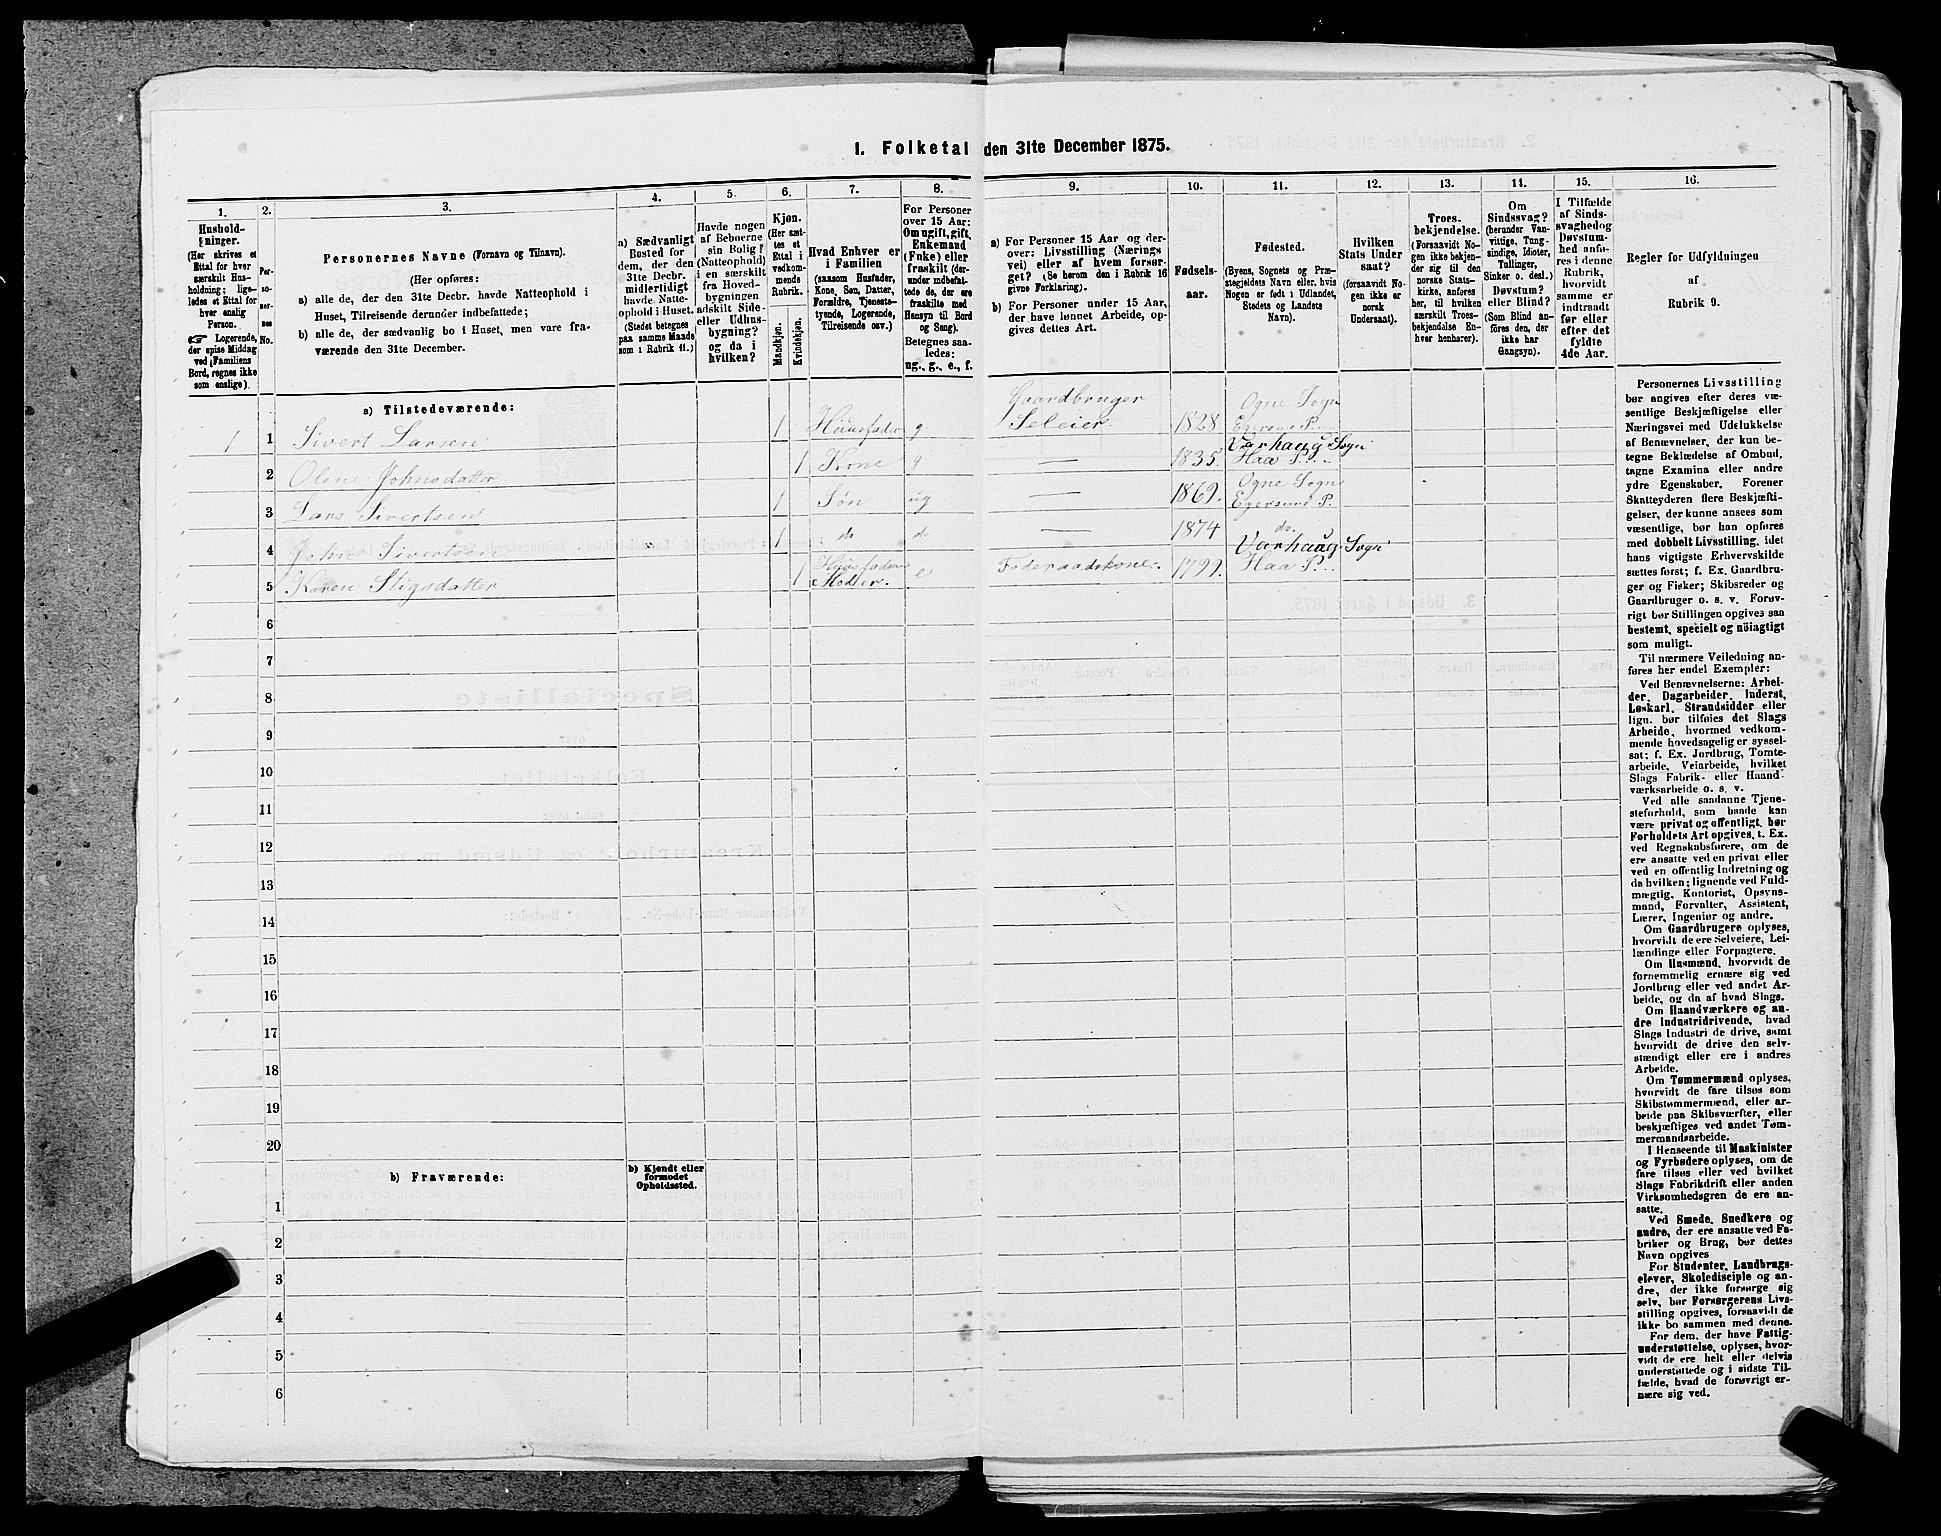 1. Folketal den 31te December 1875.
1.
Hushold-
ninger.
(Her skrives et
Ettal for hver
særskilt Hus-
holdning; lige-
ledes et Ettal for
hver enslig
Person.
☞ Logerende,
der spise Middag
ved Familiens
Bord, regnes ikke
som enslige).
2.
Per-
so-
ner-
nes
No.
3.
Personernes Navne (Fornavn og Tilnavn).
(Her opføres:
a) alle de, der den 31te Decbr. havde Natteophold i
Huset, Tilreisende derunder indbefattede;
b) alle de, der sædvanlig bo i Huset, men vare fra-
værende den 31te December.
4.
a) Sædvanligt
Bosted for
dem, der den
31te Decbr.
midlertidigt
havde Natte-
ophold i Huset.
(Stedet betegnes
paa samme Maade
som i Rubrik 11.)
5.
Havde nogen
af Beboerne
sin Bolig
(Natteophold)
i en særskilt
fra Hoved-
bygningen
adskilt Side-
eller Udhus-
bygning?
og da i
hvilken?
6.
Kjøn.
(Her sæt-
tes et
Ettal i
vedkom-
mende
Rubrik.
Mandkjøn.
Kvindekjøn.
7.
Hvad Enhver er
i Familien
(saasom Husfader,
Kone, Søn, Datter,
Forældre, Tjeneste-
tyende, Logerende,
Tilreisende osv.)
8.
For Personer
over 15 Aar:
Om ugift, gift,
Enkemand
(Enke) eller
fraskilt (der-
under indbefat-
tede de, der ere
fraskilte med
Hensyn til Bord
og Seng).
Betegnes saa-
ledes:
ug., g., e., f.
9.
a) For Personer 15 Aar og der-
over: Livsstilling (Nærings
vei) eller af hvem forsør-
get? (Se herom den i Rubrik 16
givne Forklaring).
b) For Personer under 15 Aar,
der have lønnet Arbeide, op-
gives dettes Art.
10.
Fødsels-
aar.
11.
Fødested.
(Byens, Sognets og Præ-
stegjeldets Navn eller, hvis
Nogen er født i Udlandet,
Stedets og Landets
Navn).
12.
Hvilken
Stats Under
saat?
(forsaavidt No
gen ikke er
norsk
Undersaat).
13.
Troes-
bekjendelse.
(Forsaavidt No-
gen ikke bekjen-
der sig til den
norske Stats-
kirke, anføres
her, til hvilken
særskilt Troes-
bekjendelse En-
hver henhører).
14.
Om
Sindssvag?
(herunder Van-
vittige, Tung-
sindige, Idioter,
Tullinger,
Sinker o. desl.)
Døvstum?
eller Blind?
(Som Blind an-
føres den, der
ikke har
Gangsyn).
15.
I Tilfælde
af Sinds-
svaghed og
Døvstum-
hed anfø-
res i denne
Rubrik,
hvorvidt
samme er
indtraadt
før eller
efter det
fyldte
4de Aar.
16.
Regler for Udfyldningen
af
Rubrik 9.
a) Tilstedeværende:
1 1 Sivert Larsen 1 Huusfader g Gaardbruger Seleier 1828 Ogne Sogn Egersund P.
2 Olene Johnsdatter 1 Kone g — 1835 Varhaug Sogn Haa P.
3 Lars Sivertsen 1 Søn ug — 1869. Ogne Sogn Egersund P.
4 John Sivertsen 1 do do — 1874 do.
5 Karen Stigsdatter 1 Huusfaderens Moder. e Føderaadskone. 1799. Varhaug Sogn Haa P.
6
7
8
9
10
11
12
13
14
15
16
17
18
19
20
b) Fraværende:
b) Kjendt eller
formodet
Opholdssted.
1
2
3
4
5
6
Personernes Livsstilling
bør angives efter deres væ-
sentlige Beskjæftigelse eller
Næringsvei med Udelukkelse
af Benævnelser, der kun be-
tegne Beklædelse af Ombud,
tagne Examina eller andre
ydre Egenskaber. Forener
Skatteyderen flere Beskjæfti-
gelser, der kunne ansees som
væsentlige, bør han opføres
med dobbelt Livsstilling, idet
hans vigtigste Erhvervskilde
sættes først; f. Ex. Gaardbru-
ger og Fisker; Skibsreder og
Gaardbruger o. s. v. Forøv-
rigt bør Stillingen opgives saa
bestemt, specielt og nøiagtigt
som muligt.
Til nærmere Veiledning an-
føres her endel Exempler:
Ved Benævnelserne: Arbei-
der, Dagarbeider, Inderst,
Løskarl, Strandsidder eller
lign. bør tilføies det Slags
Arbeide, hvormed vedkom-
mende hovedsagelig er syssel-
sat; f. Ex. Jordbrug, Tomte-
arbeide, Veiarbeide, hvilket
Slags Fabrik- eller Haand-
værksarbeide o. s. v.
Ved alle saadanne Tjene-
steforhold, som baade kan
være privat og offentligt, bør
Forholdets Art opgives, t. Ex.
ved Regnskabsførere, om de
ere ansatte ved en privat eller
ved en offentlig Indretning og
da hvilken; lignende ved Fuld-
mægtig, Kontorist, Opsyns-
mand, Forvalter, Assistent,
Lærer, Ingeniør og andre.
Om Gaardbrugere oplyses,
hvorvidt de ere Selveiere, Lei-
lændinge eller Forpagtere.
Om Husmænd, hvorvidt de
fornemmelig ernære sig ved
Jordbrug eller ved andet Ar-
beide, og da af hvad Slags.
Om Haandværkere og an-
dre Industridrivende, hvad
Slags Industri de drive, samt
hvorvidt de drive den selv-
stændigt eller ere i andres
Arbeide.
Om Tømmermænd oplyses,
hvorvidt de fare tilsøs som
Skibstømmermænd, eller ar-
beide paa Skibsværfter, eller
beskjæftiges ved andet Tøm-
mermandsarbeide.
I Henseende til Maskinister
og Fyrbødere oplyses, om de
fare tilsøs eller ved hvilket
Slags Fabrikdrift eller anden
Virksomhedsgren de ere an-
satte.
Ved Smede, Snedkere og
andre, der ere ansatte ved Fa-
briker og Brug, bør dettes
Navn opgives
For Studenter, Landbrugs-
elever, Skoledisciple og an-
dre, der ikke forsørge sig
selv, bør Forsørgerens Livs-
stilling opgives, forsaavidt de
ikke bo sammen med denne.
For dem, der have Fattig-
understøttelse, oplyses, hvor-
vidt de ere helt eller delvis
understøttede og i sidste Til-
fælde, hvad de forøvrigt er-
nære sig ved.